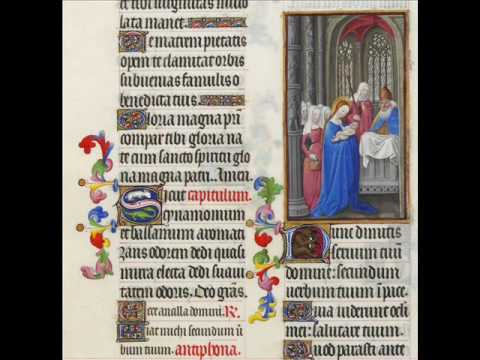 lata manet.
Te matrem pietatis
opem te clamitat orbis
subuenias famulis o
benedicta tuis.
Gloria magna pri
compar tibi gloria na
te cum sancto spiritu glo
ria magna patri. Amen
Sicut capitulum.
cynamomum
et balsamum aromati
zans odorem dedi quasi
mirra electa dedi suaui
tatem odoris. Deo gras.
Ecce ancilla domini. R.
Fiat michi secundum u
bum tuum. antiphona.
Nunc dimittis
seruum tuu
domine: secundum
uerbum tuum in pace.
Quia uiderunt oculi
mei: salutare tuum.
Quod parasti ante